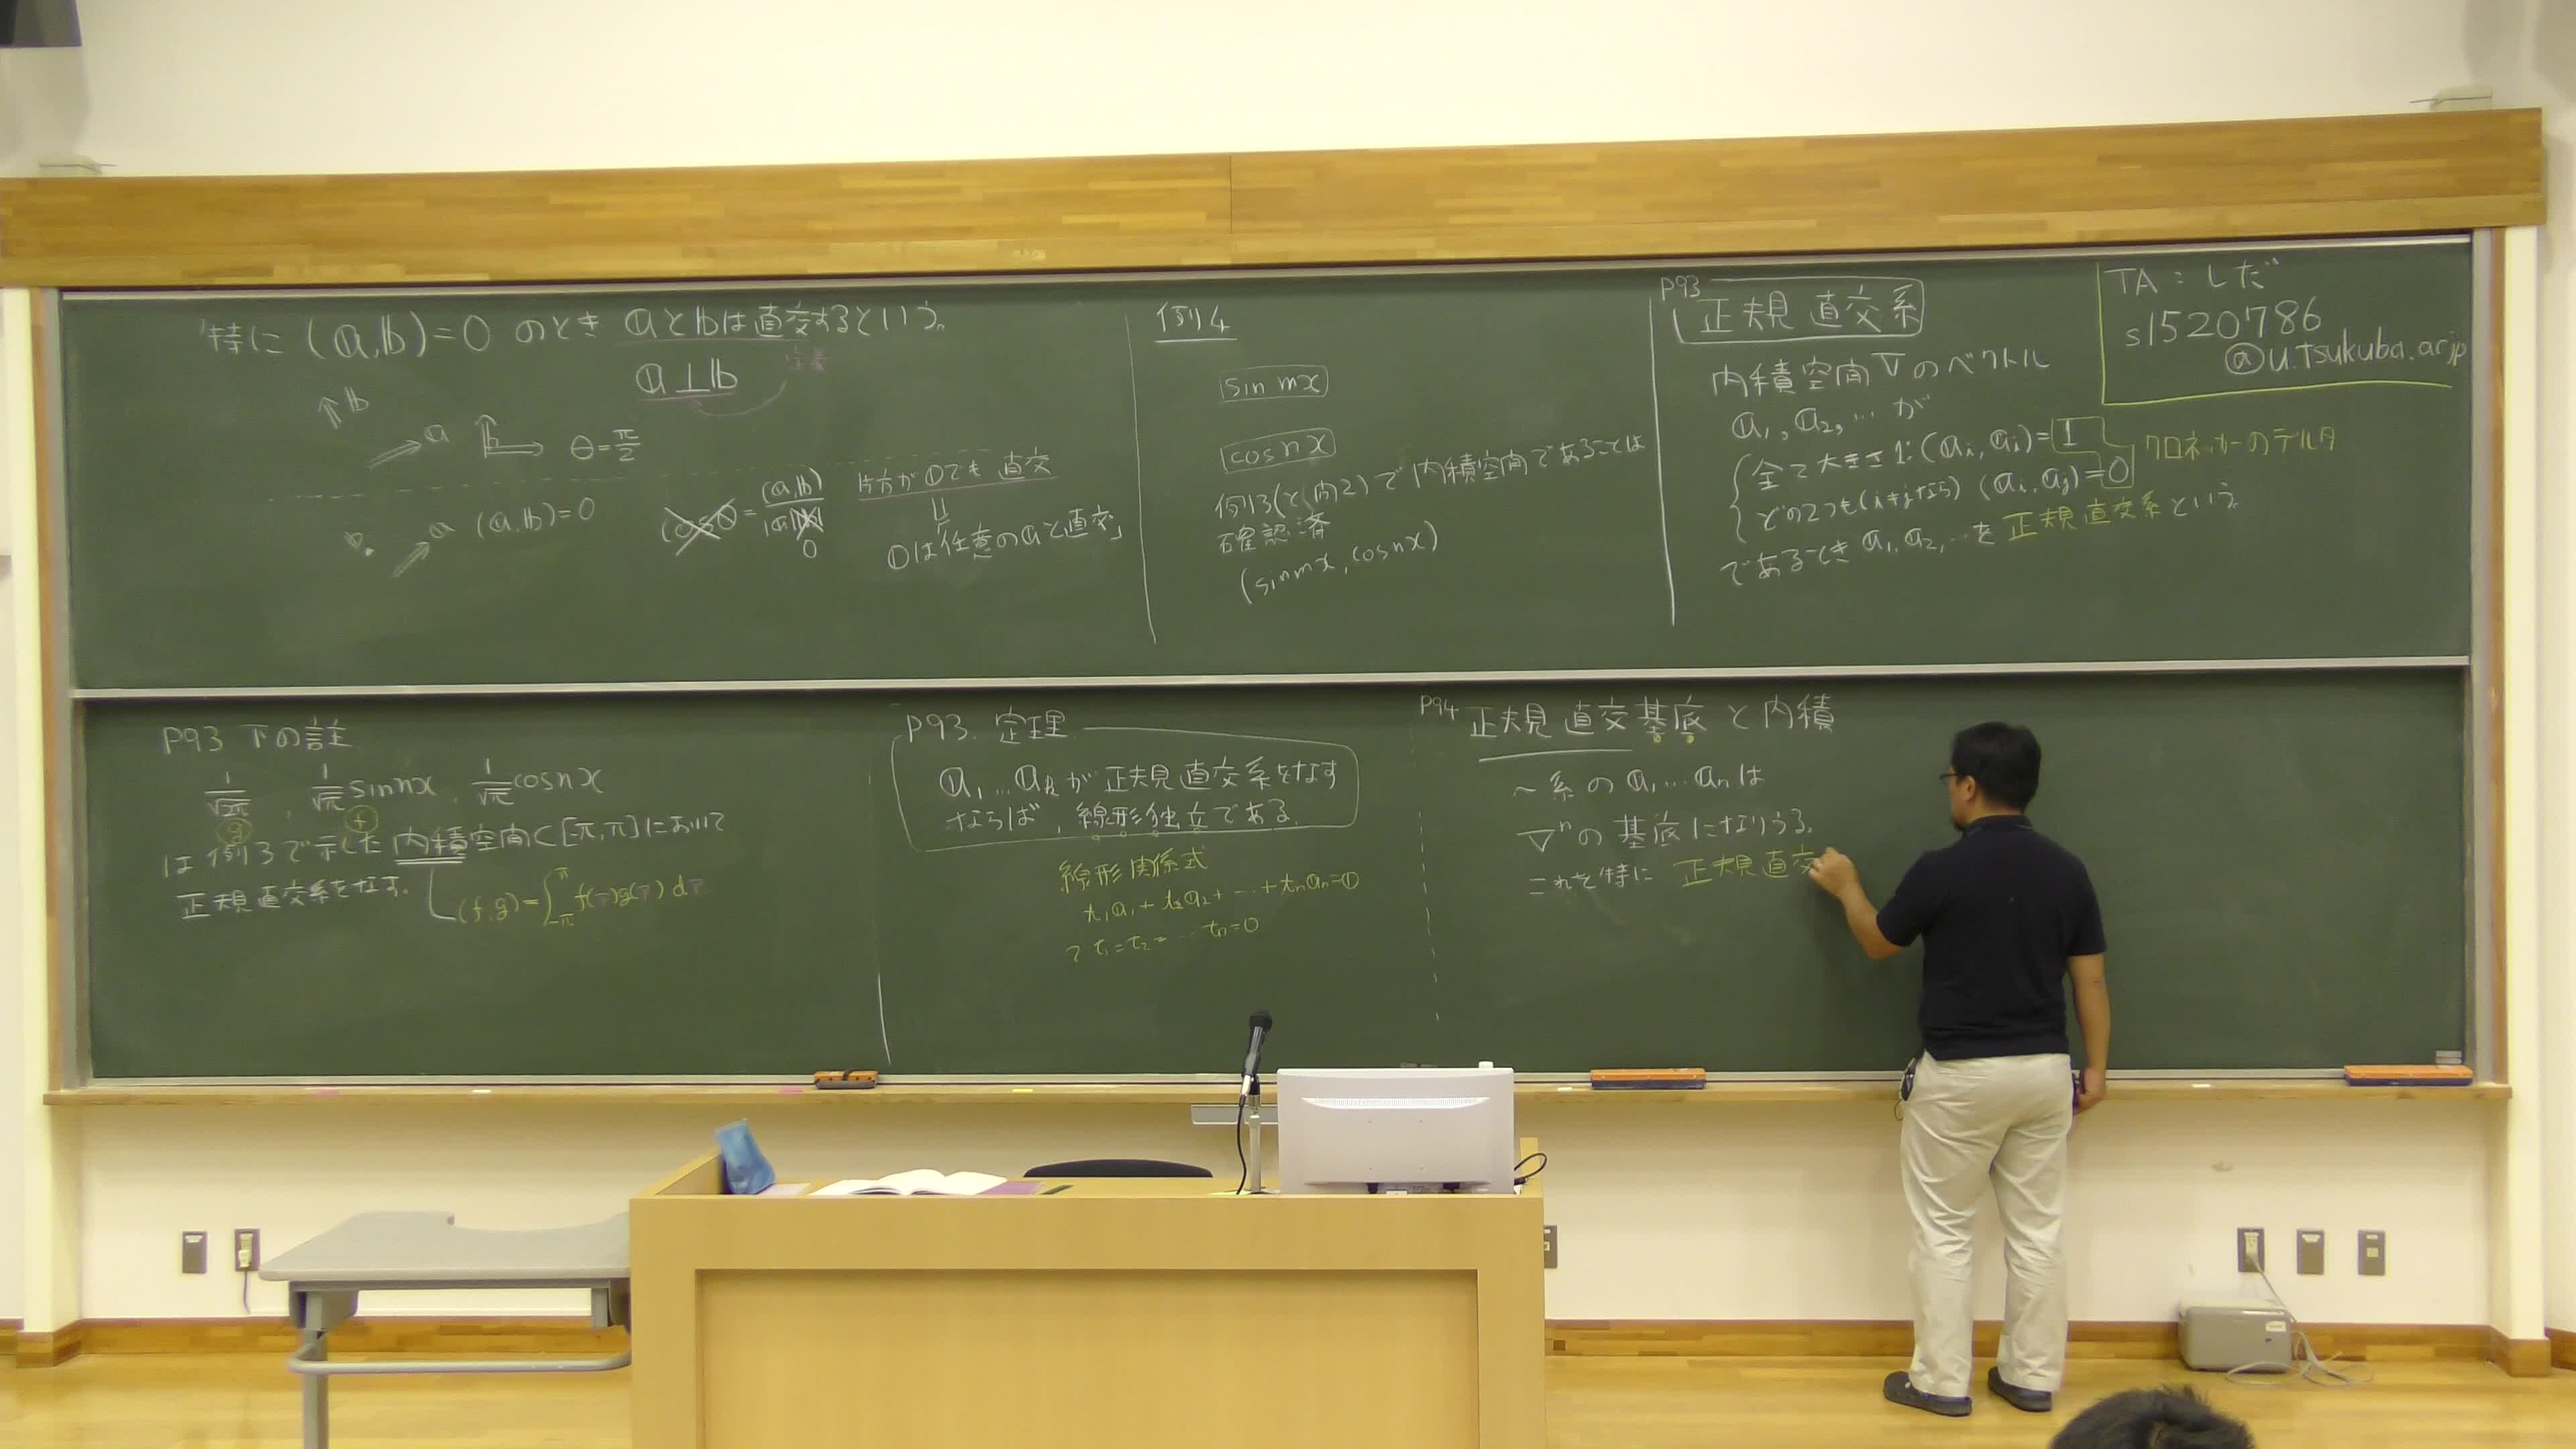 特に (a,b)=0 のとき aとbは直交するという。
a⊥b
定義
b
a
b
θ=π/2
a (a,b)=0
cosθ=(a,b)/|a||b|
0
片方が0でも直交
⇓
「0は任意のaと直交」
例4
sin mx
cos nx
例3(と問2)で内積空間であることは
確認済
(sin mx, cos nx)
P93
正規直交系
内積空間Vのベクトル
a₁, a₂, … が
全て大きさ1: (aᵢ, aᵢ)=1
どの2つも(i≠jなら) (aᵢ, aⱼ)=0
クロネッカーのデルタ
であるとき a₁, a₂, …を 正規直交系 という。
TA:しだ
s1520786
@u.tsukuba.ac.jp
P93 下の註
1/√2π , 1/√π sin nx , 1/√π cos nx
g f
は例3で示した内積空間C[-π,π]において
正規直交系をなす。
(f,g)=∫_{-π}^{π} f( )g( ) d
P93. 定理
a₁…aₖが正規直交系をなす
ならば、線形独立である.
線形関係式
t₁a₁+t₂a₂+…+tₙaₙ=0
で t₁=t₂=…tₙ=0
P94 正規直交基底と内積
〜系の a₁…aₙは
Vⁿの基底になりうる.
これを特に 正規直交